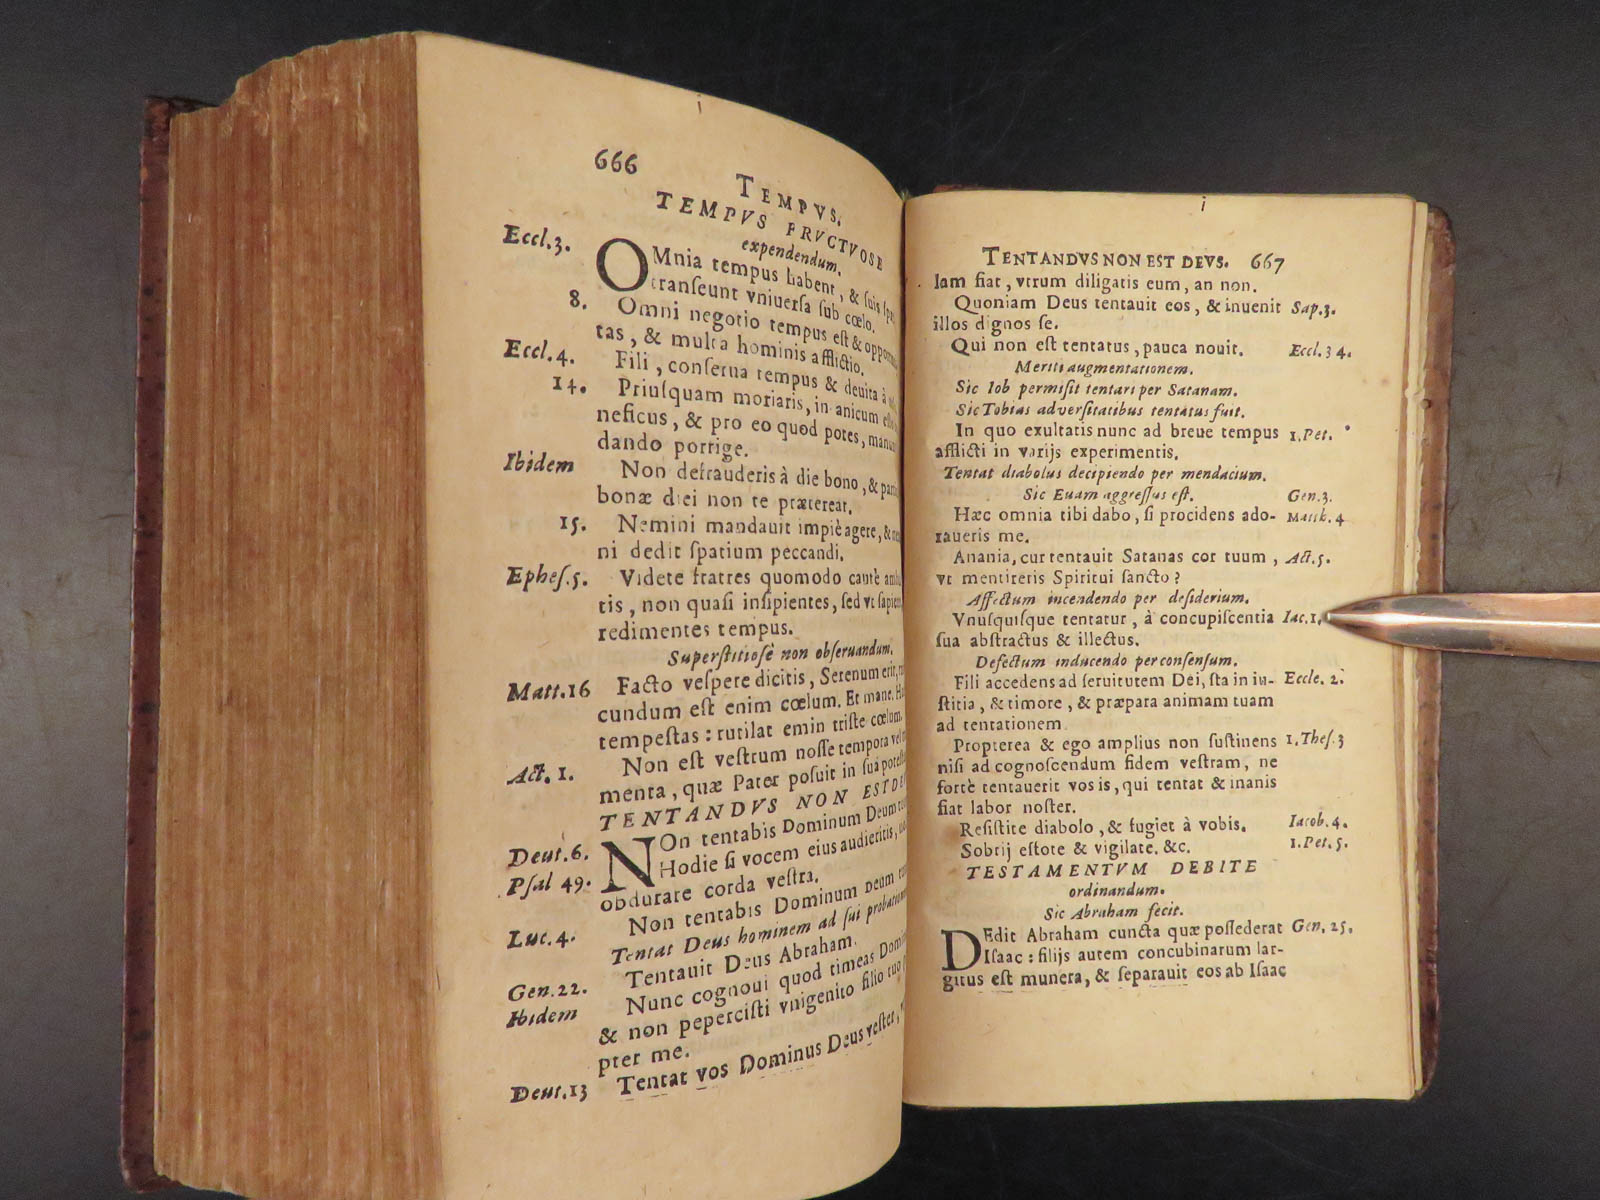 666
TEMPVS.
TEMPVS FRVCTVOSE
expendendum.
Eccl.3. OMnia tempus habent, & suis
transeunt vniuersa sub cœlo.
8. Omni negotio tempus est & oppor
tas, & multa hominis afflictio.
Eccl.4. Fili, conserua tempus & deuita à
14. Priusquam moriaris, in anicum
neficus, & pro eo quod potes,
dando porrige.
Ibidem Non defrauderis à die bono, &
bonæ diei non te prætereat.
15. Nemini mandauit impiè agere, &
ni dedit spatium peccandi.
Ephes.5. Videte fratres quomodo cautè
tis, non quasi insipientes, sed vt
redimentes tempus.
Superstitiosè non obseruandum.
Matt.16 Facto vespere dicitis, Serenum erit,
cundum est enim cœlum. Et mane.
tempestas: rutilat emin triste cœlum.
Act. 1. Non est vestrum nosse tempora vel
menta, quæ Pater posuit in sua
TENTANDVS NON EST
Deut.6. NOn tentabis Dominum Deum
Psal 49. Hodie si vocem eius audieritis,
obdurare corda vestra.
Luc.4. Non tentabis Dominum Deum
Tentat Deus hominem ad sui
Gen.22. Tentauit Deus Abraham.
Ibidem Nunc cognoui quod timeas
& non pepercisti vnigenito filio tuo
pter me.
Deut.13 Tentat vos Dominus Deus vester,
TENTANDVS NON EST DEVS. 667
lam fiat, vtrum diligatis eum, an non.
Quoniam Deus tentauit eos, & inuenit Sap.3.
illos dignos se.
Qui non est tentatus, pauca nouit. Eccl.34.
Meriti augmentationem.
Sic Iob permisit tentari per Satanam.
Sic Tobias adversitatibus tentatus fuit.
In quo exultatis nunc ad breue tempus 1.Pet.
afflicti in varijs experimentis.
Tentat diabolus decipiendo per mendacium.
Sic Euam aggressus est. Gen.3.
Hæc omnia tibi dabo, si procidens ado- Matth.4
raueris me.
Anania, cur tentauit Satanas cor tuum, Act.5.
vt mentireris Spiritui sancto?
Affectum incendendo per desiderium.
Vnusquisque tentatur, à concupiscentia Iac.1.
sua abstractus & illectus.
Defectum inducendo per consensum.
Fili accedens ad seruitutem Dei, sta in iu- Eccle. 2.
stitia, & timore, & præpara animam tuam
ad tentationem
Propterea & ego amplius non sustinens 1.Thes.3
nisi ad cognoscendum fidem vestram, ne
fortè tentauerit vos is, qui tentat & inanis
fiat labor noster.
Resistite diabolo, & fugiet à vobis. Iacob.4.
Sobrij estote & vigilate. &c. 1.Pet.5.
TESTAMENTVM DEBITE
ordinandum.
Sic Abraham fecit.
DEdit Abraham cuncta quæ possederat Gen.25.
Isaac: filijs autem concubinarum lar-
gitus est munera, & separauit eos ab Isaac